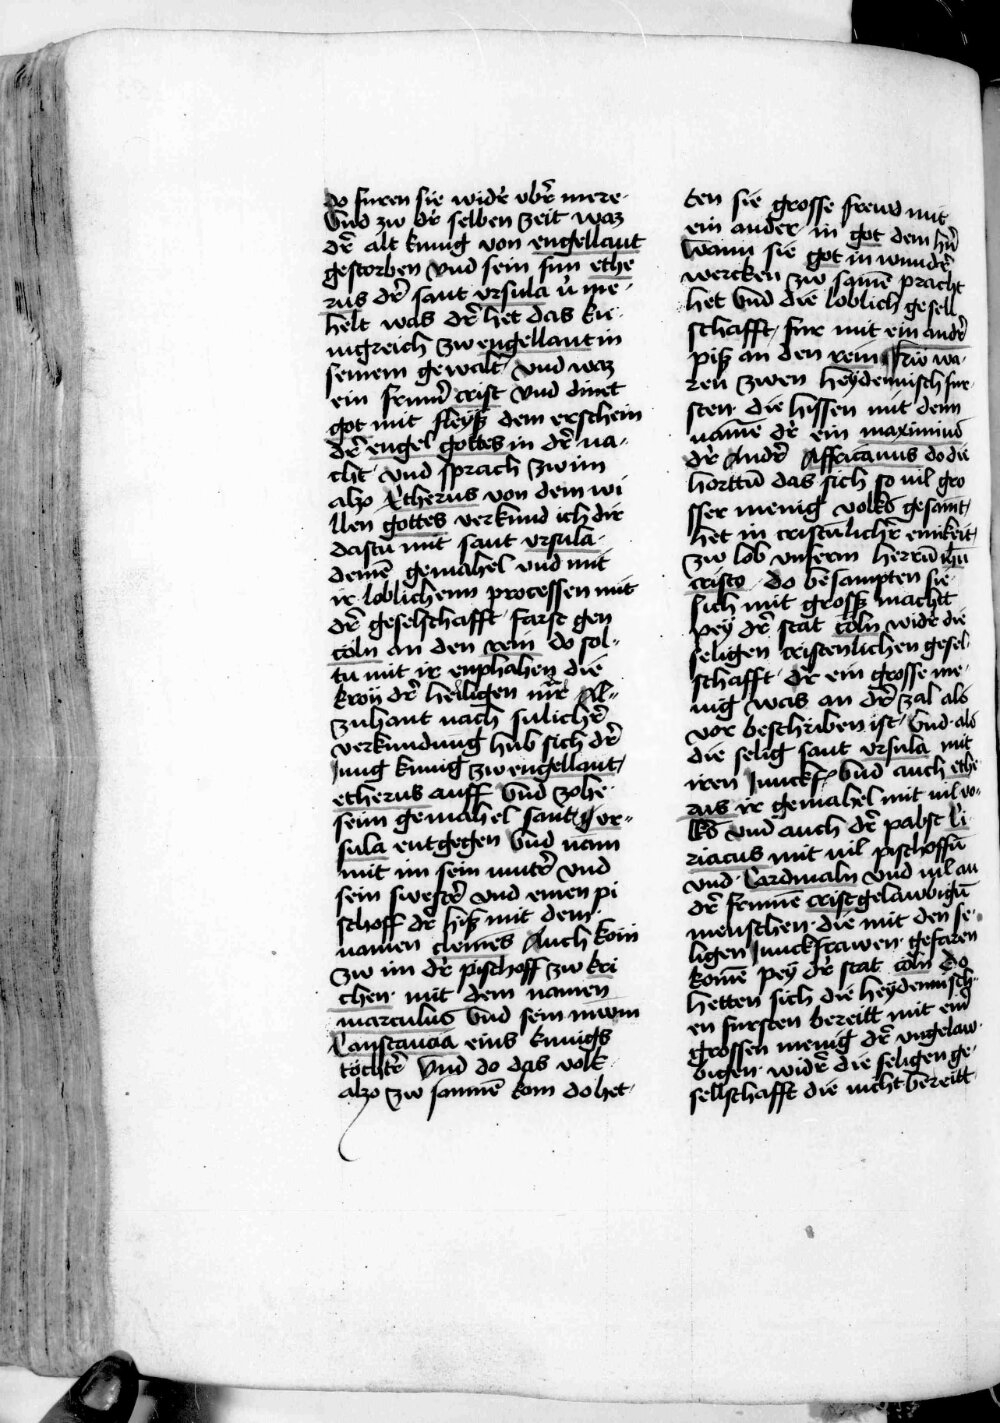 do furen sie widʼr vbʼr mere·
Vnd zw dʼr selben zeit waz
dʼr alt kunig von engellant
gestorben vnd sein sun ethe
rus dʼr sant vrsula ṽ me·
helt was dʼr het das ku·
nigreich zw engellant in
seinem gewalt· vnd waz
ein frumʼ crist vnd dinet
got mit fleyß dem erschein
dʼr engel gottes in dʼr na·
cht· vnd sprach zw im
alzo Etherus von dem wi
llen gottes verkund ich dir
dastu mit sant vrsula·
deinē gemahel vnd mit
ir loblichenn processen mit
dʼr geselschafft· farst gen
cöln an den rein do sol-
tu mit ir enphahen die
kron dʼr heiligen mʼr Al-
zuhant nach sulichʼr
verkundung hub sich dʼr
Jung kunig zw engellant/
etherus auff Vnd zohe·
seim gemahel sant vr-
sula entgegen Vnd nam
mit im sein mutʼr vnd
sein swestʼr vnd einen pi
schoff dʼr hiß mit dem·
namen clemes Auch kom
zw im dʼr pischoff zw kri
chen· mit dem namen
marculus Vnd sein mwm
Constancia eins kunigs
töchtʼr Vnd do das volk
alzo zw samē kom do het·
ten sie grosse frewd mit
ein ander· in got dem hʼrn
Wann sie got in wundʼr
wercken zw samē pracht
het Vnd die loblich gesell
schafft· fur mit ein andʼr
piß an den rein Nw wa·
ren zwen heydennisch fur·
sten· die hissen mit dem
namē dʼr ein maximius
dʼr Andʼr Affricanus do die
horttū das sich so uil gro
sser menig volks gesamt/
het in cristenlichʼr einikeit/
zw lob vnserm herrū ihū
cristo· do besampten sie·
sich mit grosß machtt
pey dʼr stat cöln widʼr die
seligen cristenlichen gesel·
schafft· dʼr ein grosse me·
nig was an dʼr zal als
vor beschriben ist· Vnd als
die selig sant vrsula mit
iren Junckf· Vnd auch ethe
rus ir gemahel mit uil vo-
lks vnd auch dʼr pabst Ci
riacus mit uil pischoffū
vnd· Cardinaln vnd uil an
dʼr frumē cristgelawbigū
menschen· die mit den se·
ligen Junckfrawen· gefaren
komē pey dʼr stat cöln Do
hetten sich die heydennisch-
en fursten bereitt mit ein
grossen menig dʼr vngelaw·
bigen· widʼr die seligen ge·
sellschafft die nicht bereitt·